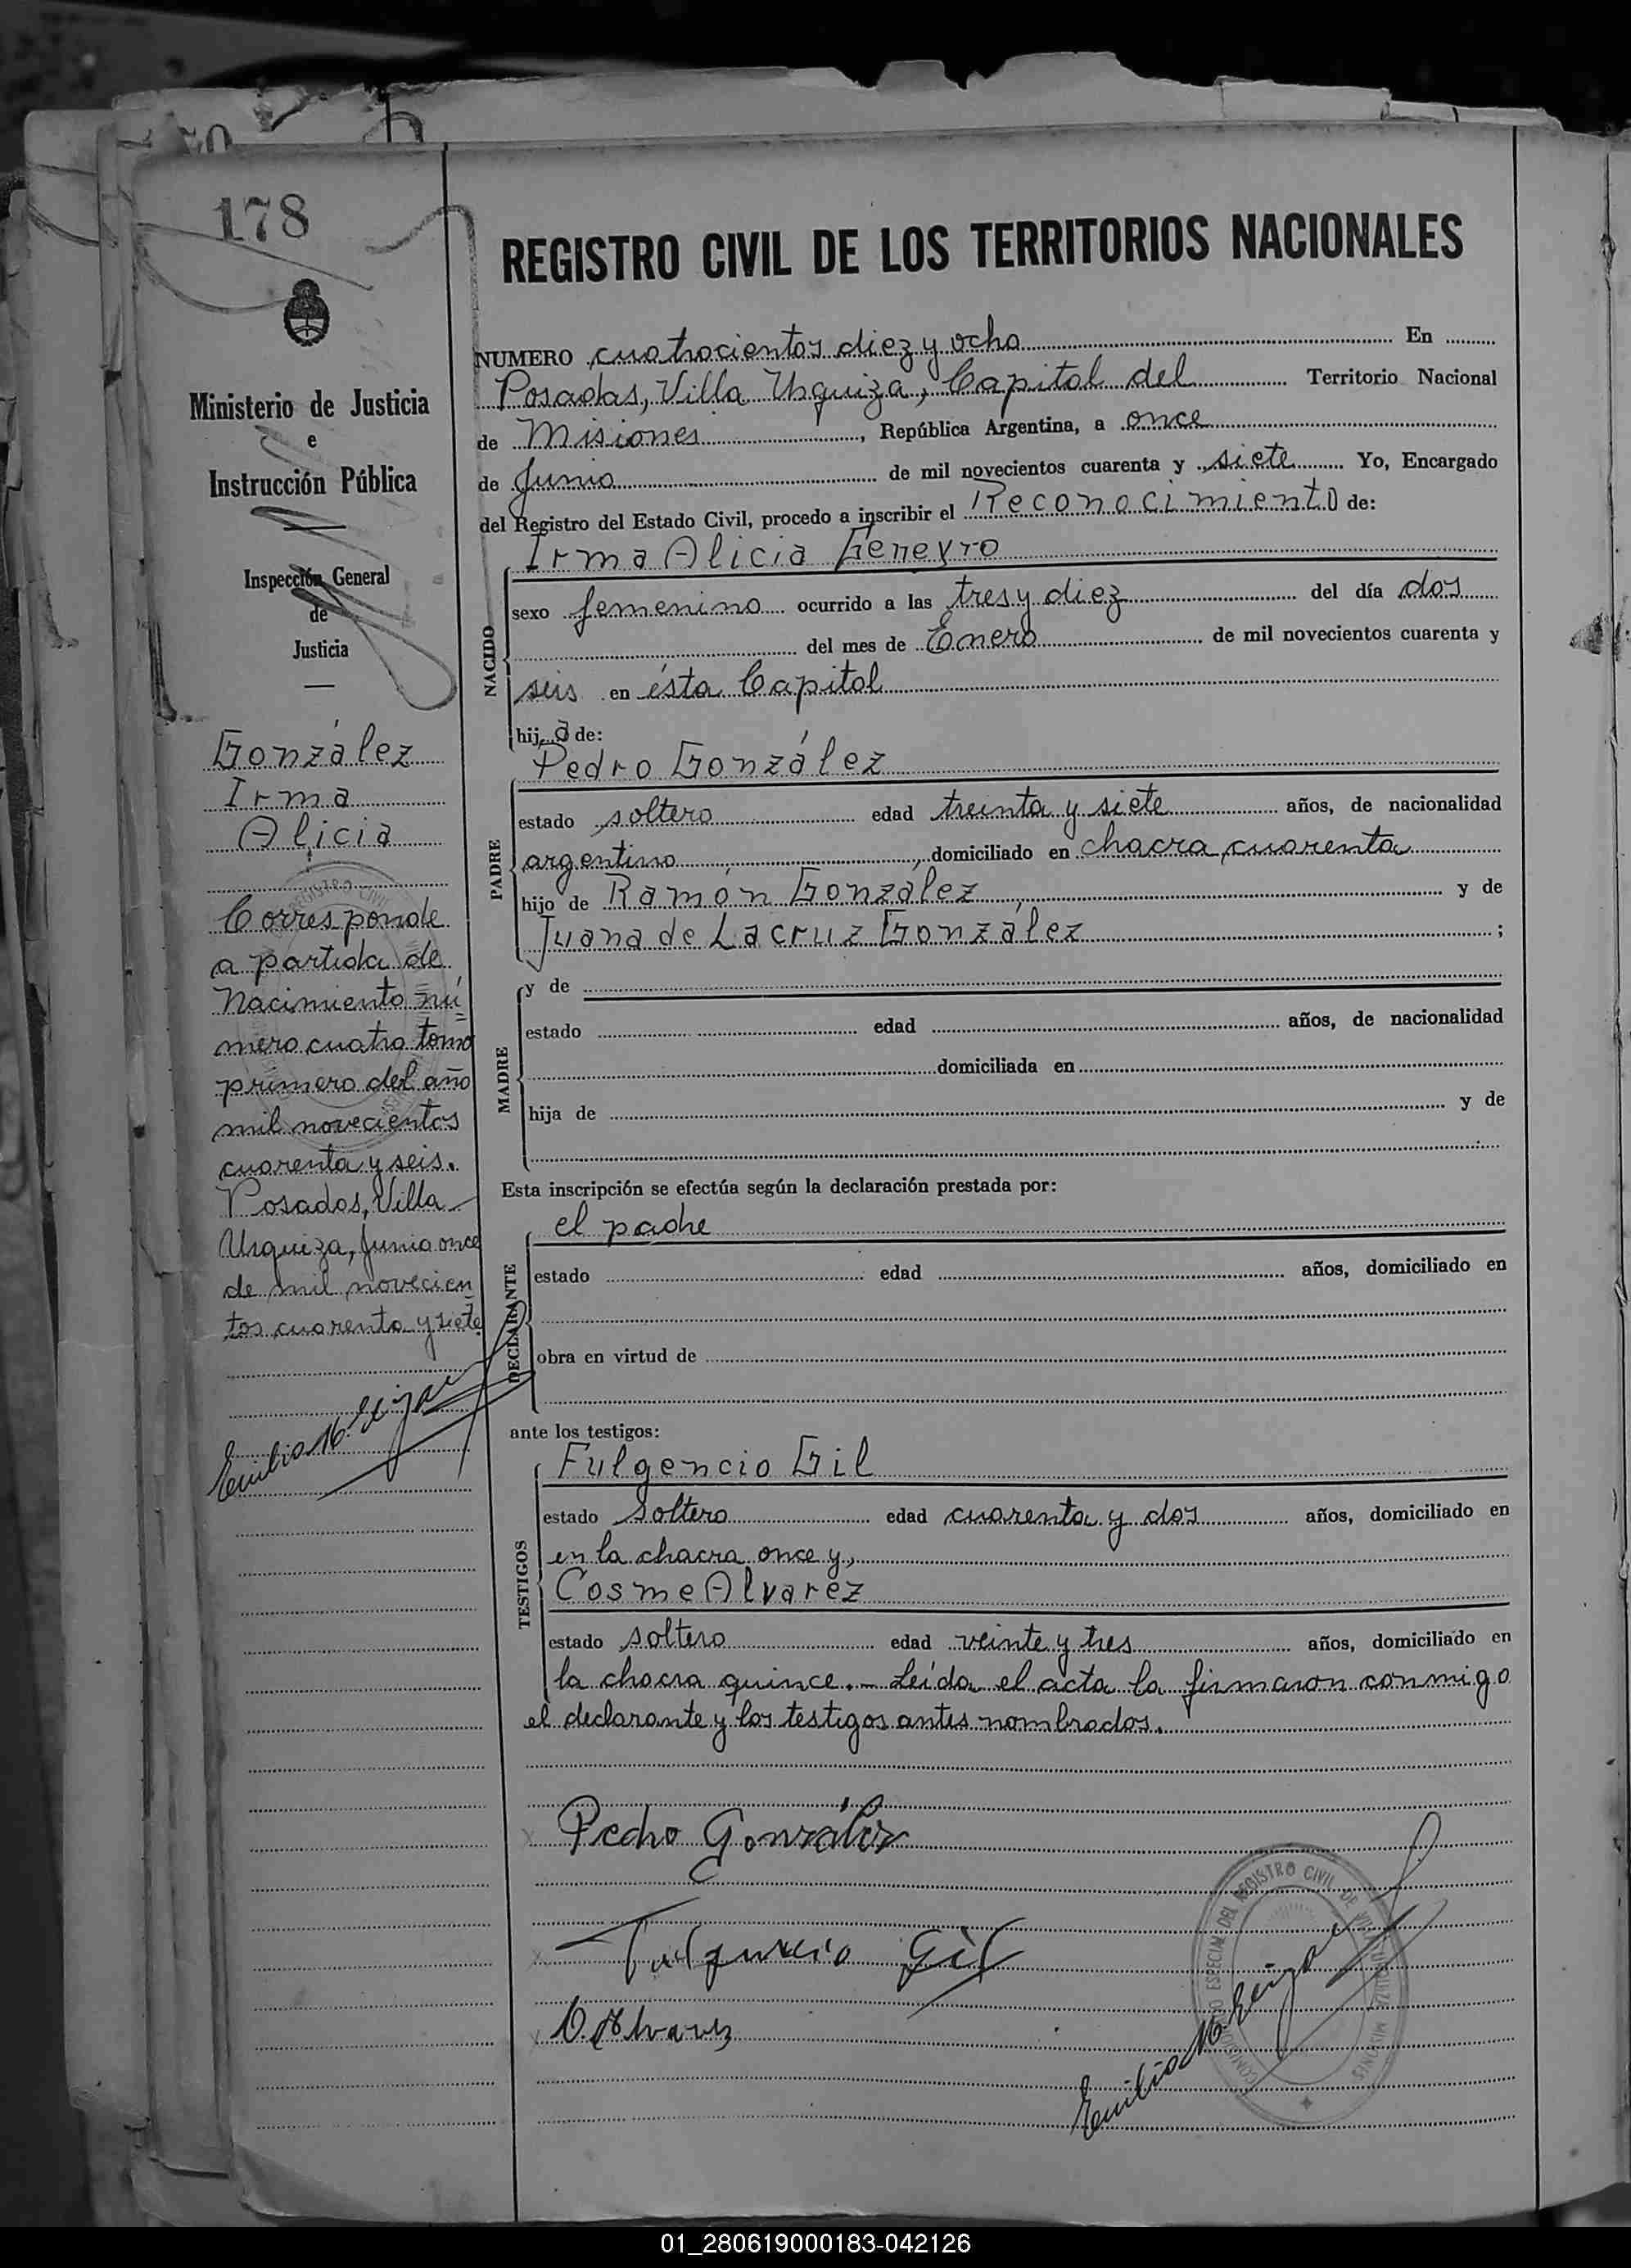 178
Ministerio de Justicia
e
Instrucción Pública
Inspección General
de
Justicia
González
Irma
Alicia
Corresponde
a partida de
Nacimiento nú
mero cuatro tomo
primero del año
mil novecientos
cuarenta y seis.
Posadas, Villa
Urquiza, Junio once
de mil novecien
tos cuarenta y siete
Emilio M.
REGISTRO CIVIL DE LOS TERRITORIOS NACIONALES
NUMERO cuatrocientos diez y ocho En
Posadas, Villa Urquiza, Capital del Territorio Nacional
de Misiones, República Argentina, a once
de Junio de mil novecientos cuarenta y siete Yo, Encargado
del Registro del Estado Civil, procedo a inscribir el Reconocimiento de:
Irma Alicia Geneyro
NACIDO
sexo femenino ocurrido a las tres y diez del día dos
del mes de Enero de mil novecientos cuarenta y
seis en ésta Capital
hija de:
Pedro González
PADRE
estado soltero edad treinta y siete años, de nacionalidad
argentino, domiciliado en chacra cuarenta
hijo de Ramón González, y de
Juana de Lacruz González;
MADRE
y de
estado edad años, de nacionalidad
domiciliada en
hija de y de
Esta inscripción se efectúa según la declaración prestada por:
el padre
DECLARANTE
estado edad años, domiciliado en
obra en virtud de
ante los testigos:
Fulgencio Gil
TESTIGOS
estado soltero edad cuarenta y dos años, domiciliado en
en la chacra once y,
Cosme Alvarez
estado soltero edad veinte y tres años, domiciliado en
la chacra quince.- Leída el acta la firmaron conmigo
el declarante y los testigos antes nombrados.
Pedro González
Fulgencio Gil
C. Alvarez
Emilio M.
REGISTRO CIVIL DE VILLA URQUIZA MISIONES
01_280619000183-042126